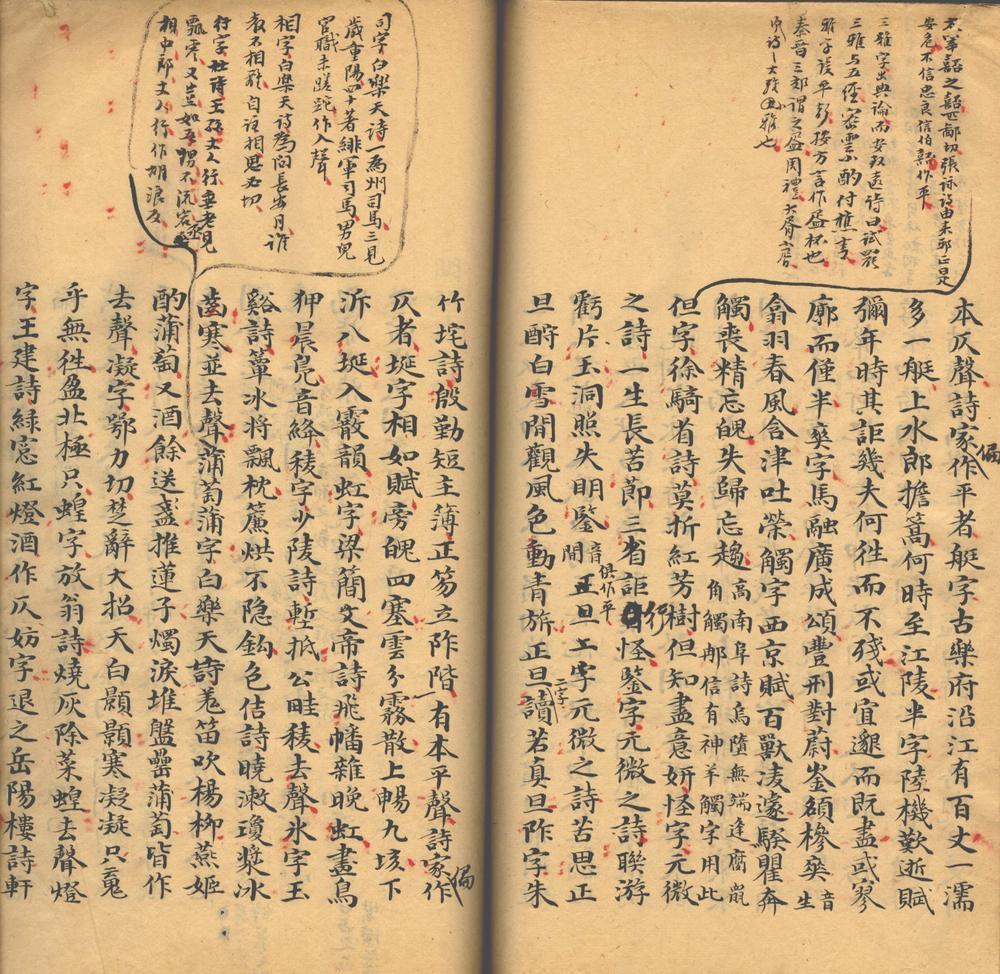 安危不信忠良信伯䪫作平
三雅字出典論而
三雅与五經
雅字誤平彭按方言作盛杯也
秦晉三郊謂之盛周禮大胥
本仄聲詩家作平者艇字古樂府沿江有百丈一濡
多一艇上水郎擔篙何時至江陵半字陸機歎逝賦
彌年時其詎幾夫何徃而不殘或冝邈而既盡或寥
廓而僅半䓑字馬融廣成頌豐刑對蔚崟頟槮䓑音生
翕羽春風含津吐榮觸字西京賦百獸凌遽騤瞿奔
觸喪精忘魄失歸忘趨角觸邪信有神羊觸字用此高南阜詩烏隨無端逢腐鼠
但字徐騎省詩莫折紅芳樹但知盡意妍怪字元微
之詩一生長苦節三省詎行怪鑒字元微之詩聯游
虧片玉洞照失明鑒音間正旦二字俱作平元微之詩苦思正
旦酧白雪閒觀風色動青旂正旦二字讀若真旦阼字朱
司字白樂天詩一為州司馬三見
歲重陽四十著緋軍司馬男兒
官職未蹉跎作入聲
相字白樂天詩為問長安月誰
教不相離自註相思必切
行字杜詩王孫丈人行垂老見
飄零又豈如吾甥不流宕丞
相中郎丈人行作胡浪反
竹垞詩殷勤短主簿正笏立阼階有本平聲詩家作
仄者埏字相如賦旁魄四塞雲分霧散上暢九垓下
泝八埏入霰韻虹字梁簡文帝詩飛幡雜晚虹畫鳥
狎晨鳧音絳稜字少陵詩塹抵公畦稜去聲氷字玉
谿詩簟冰將飄枕簾烘不隠鈎色佶詩曉漱瓊漿冰
齒寒並去聲蒲萄蒲字白樂天詩羌笛吹楊柳燕姬
酌蒲萄又酒餘送盞推蓮子燭淚堆盤罍蒲萄皆作
去聲凝字鄂力切楚辭大招天白顥顥寒凝凝只䰟
乎無徃盈北極只蝗字放翁詩燒灰除菜蝗去聲燈
字王建詩緑窓紅燈酒作仄妨字退之岳陽樓詩軒